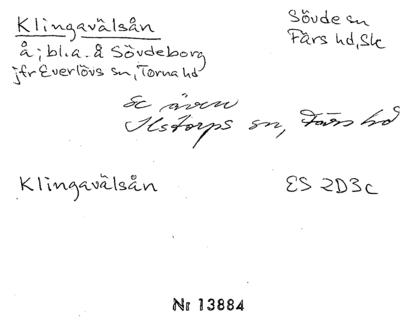 Klingavälsån
Sövde sn
å; bl.a. å Sövdeborg
Färs hd, Sk
jfr Everlövs sn, Torna hd
Se även
Ilstorps sn, Färs hd
Klingavälsån
ES 2D3c
Nr 13884